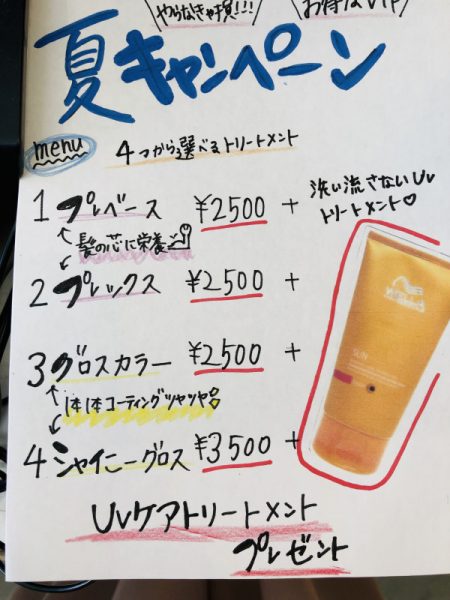 やらなきゃ損!!!
お得なVIP
夏キャンペーン
menu
4つから選べるトリートメント
1 プレベース ¥2500 +
洗い流さないUv
トリートメント♡
髪の芯に栄養
2 プレックス ¥2500 +
3 グロスカラー ¥2500 +
1本1本コーティングツヤツヤ
4 シャイニーグロス ¥3500 +
WELLA
SUN
Uvケアトリートメント
プレゼント